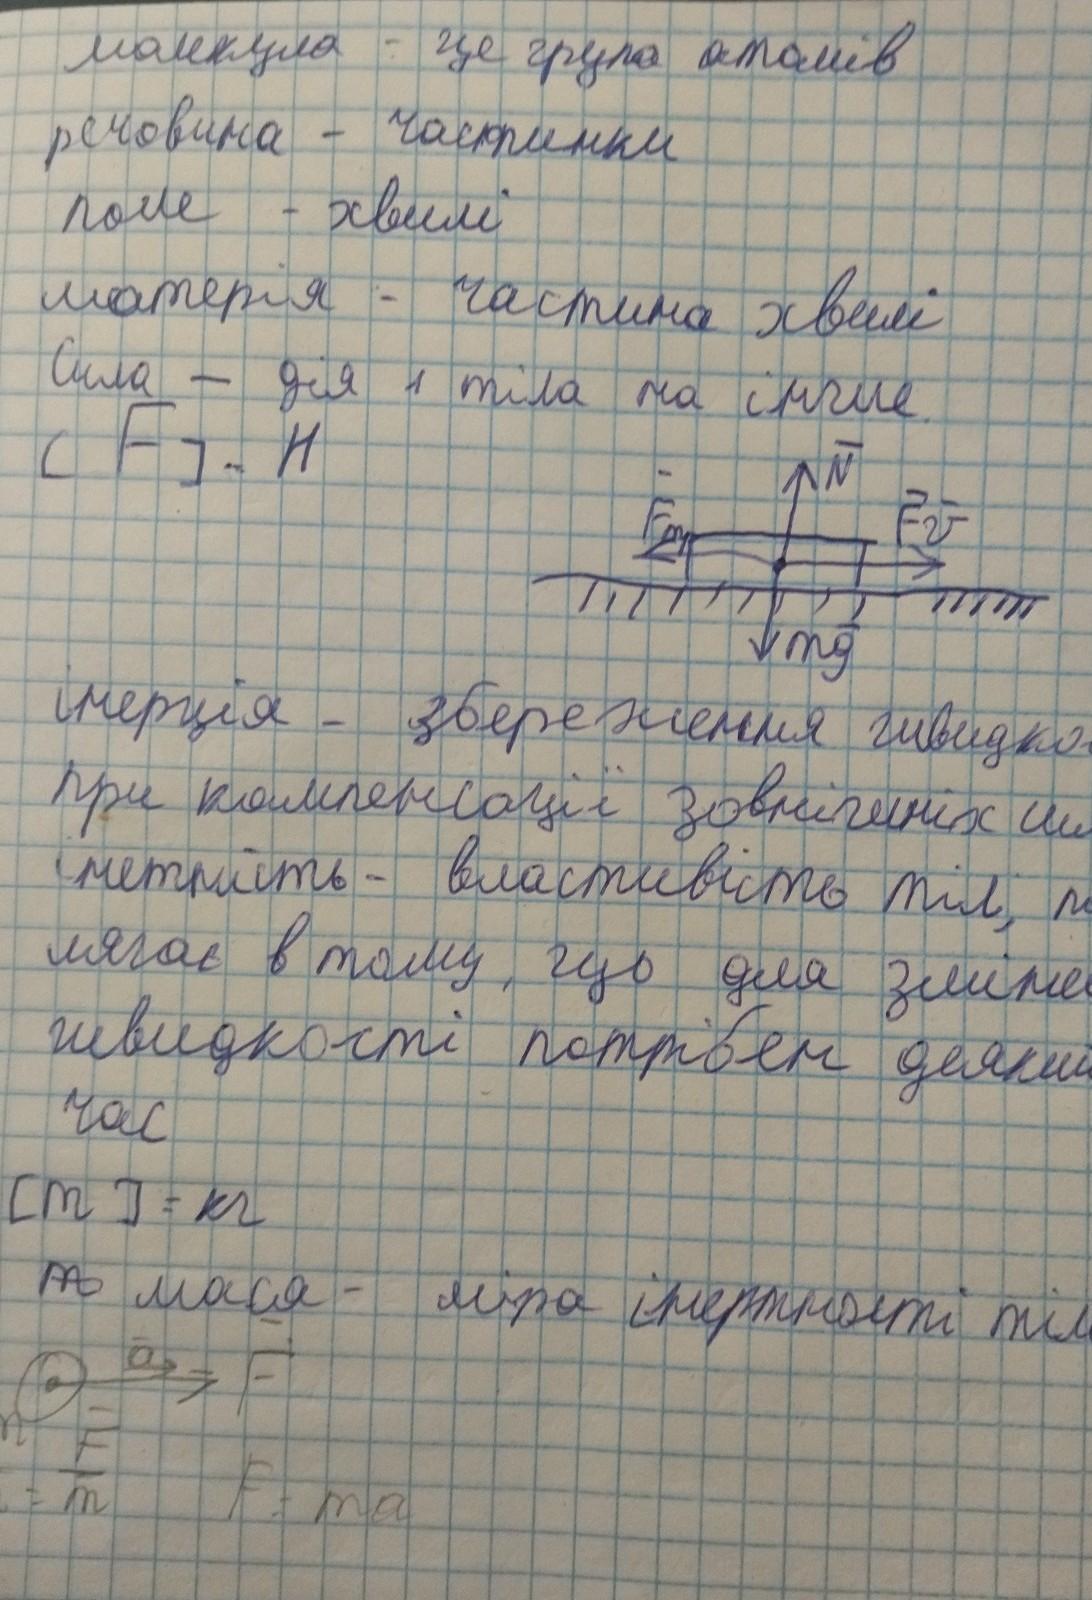 молекула - це група атомів
речовина - частинки
поле - хвилі
матерія - частина хвилі
Сила — дія 1 тіла на інше.
[F] - Н
N
Fт F v
mg
інерція - збереження швидко-
при компенсації зовнішніх сил
інетрність - властивість тіл, по
лягає в тому, що для зміни
швидкості потрібен деякий
час
[m] = кг
маса - міра інертності тіла
a F
m
= F/m F = ma